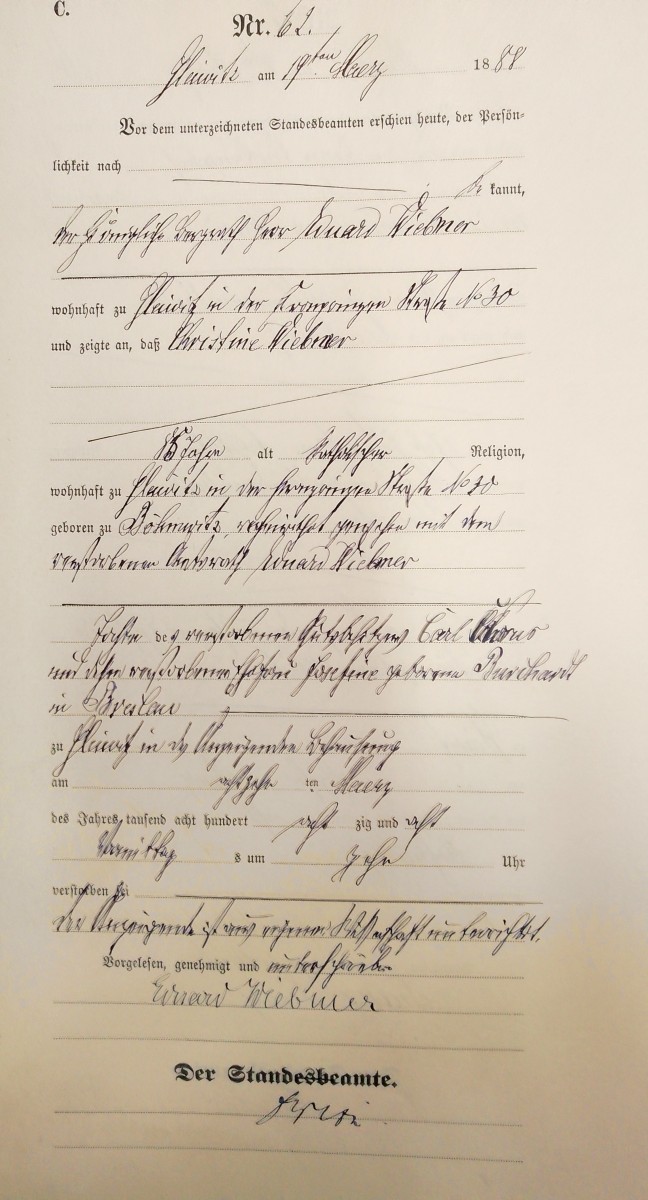 C.
Nr. 62.
Gleiwitz am 19ten Maerz 1888
Vor dem unterzeichneten Standesbeamten erschien heute, der Persön-
lichkeit nach
be kannt,
der Königliche Bergrath Herr Eduard Wiebmer
wohnhaft zu Gleiwitz in der Kronprinzen Straße No 30
und zeigte an, daß Christine Wiebmer
Jahre alt katholischer Religion,
wohnhaft zu Gleiwitz in der Kronprinzen Straße No 30
geboren zu verheirathet gewesen mit dem
verstorbenen Eduard Wiebmer
Tochter des verstorbenen Gutsbesitzers Carl
und dessen verstorbenen Ehefrau Josefine geborene Burchardt
in Breslau
zu Gleiwitz in des Anzeigenden Behausung
am achtzehn ten Maerz
des Jahres tausend acht hundert acht zig und acht
Vormittag s um zehn Uhr
verstorben sei
Der Anzeigende ist aus eigener Wissenschaft unterrichtet.
Vorgelesen, genehmigt und unterschrieben
Eduard Wiebmer
Der Standesbeamte.